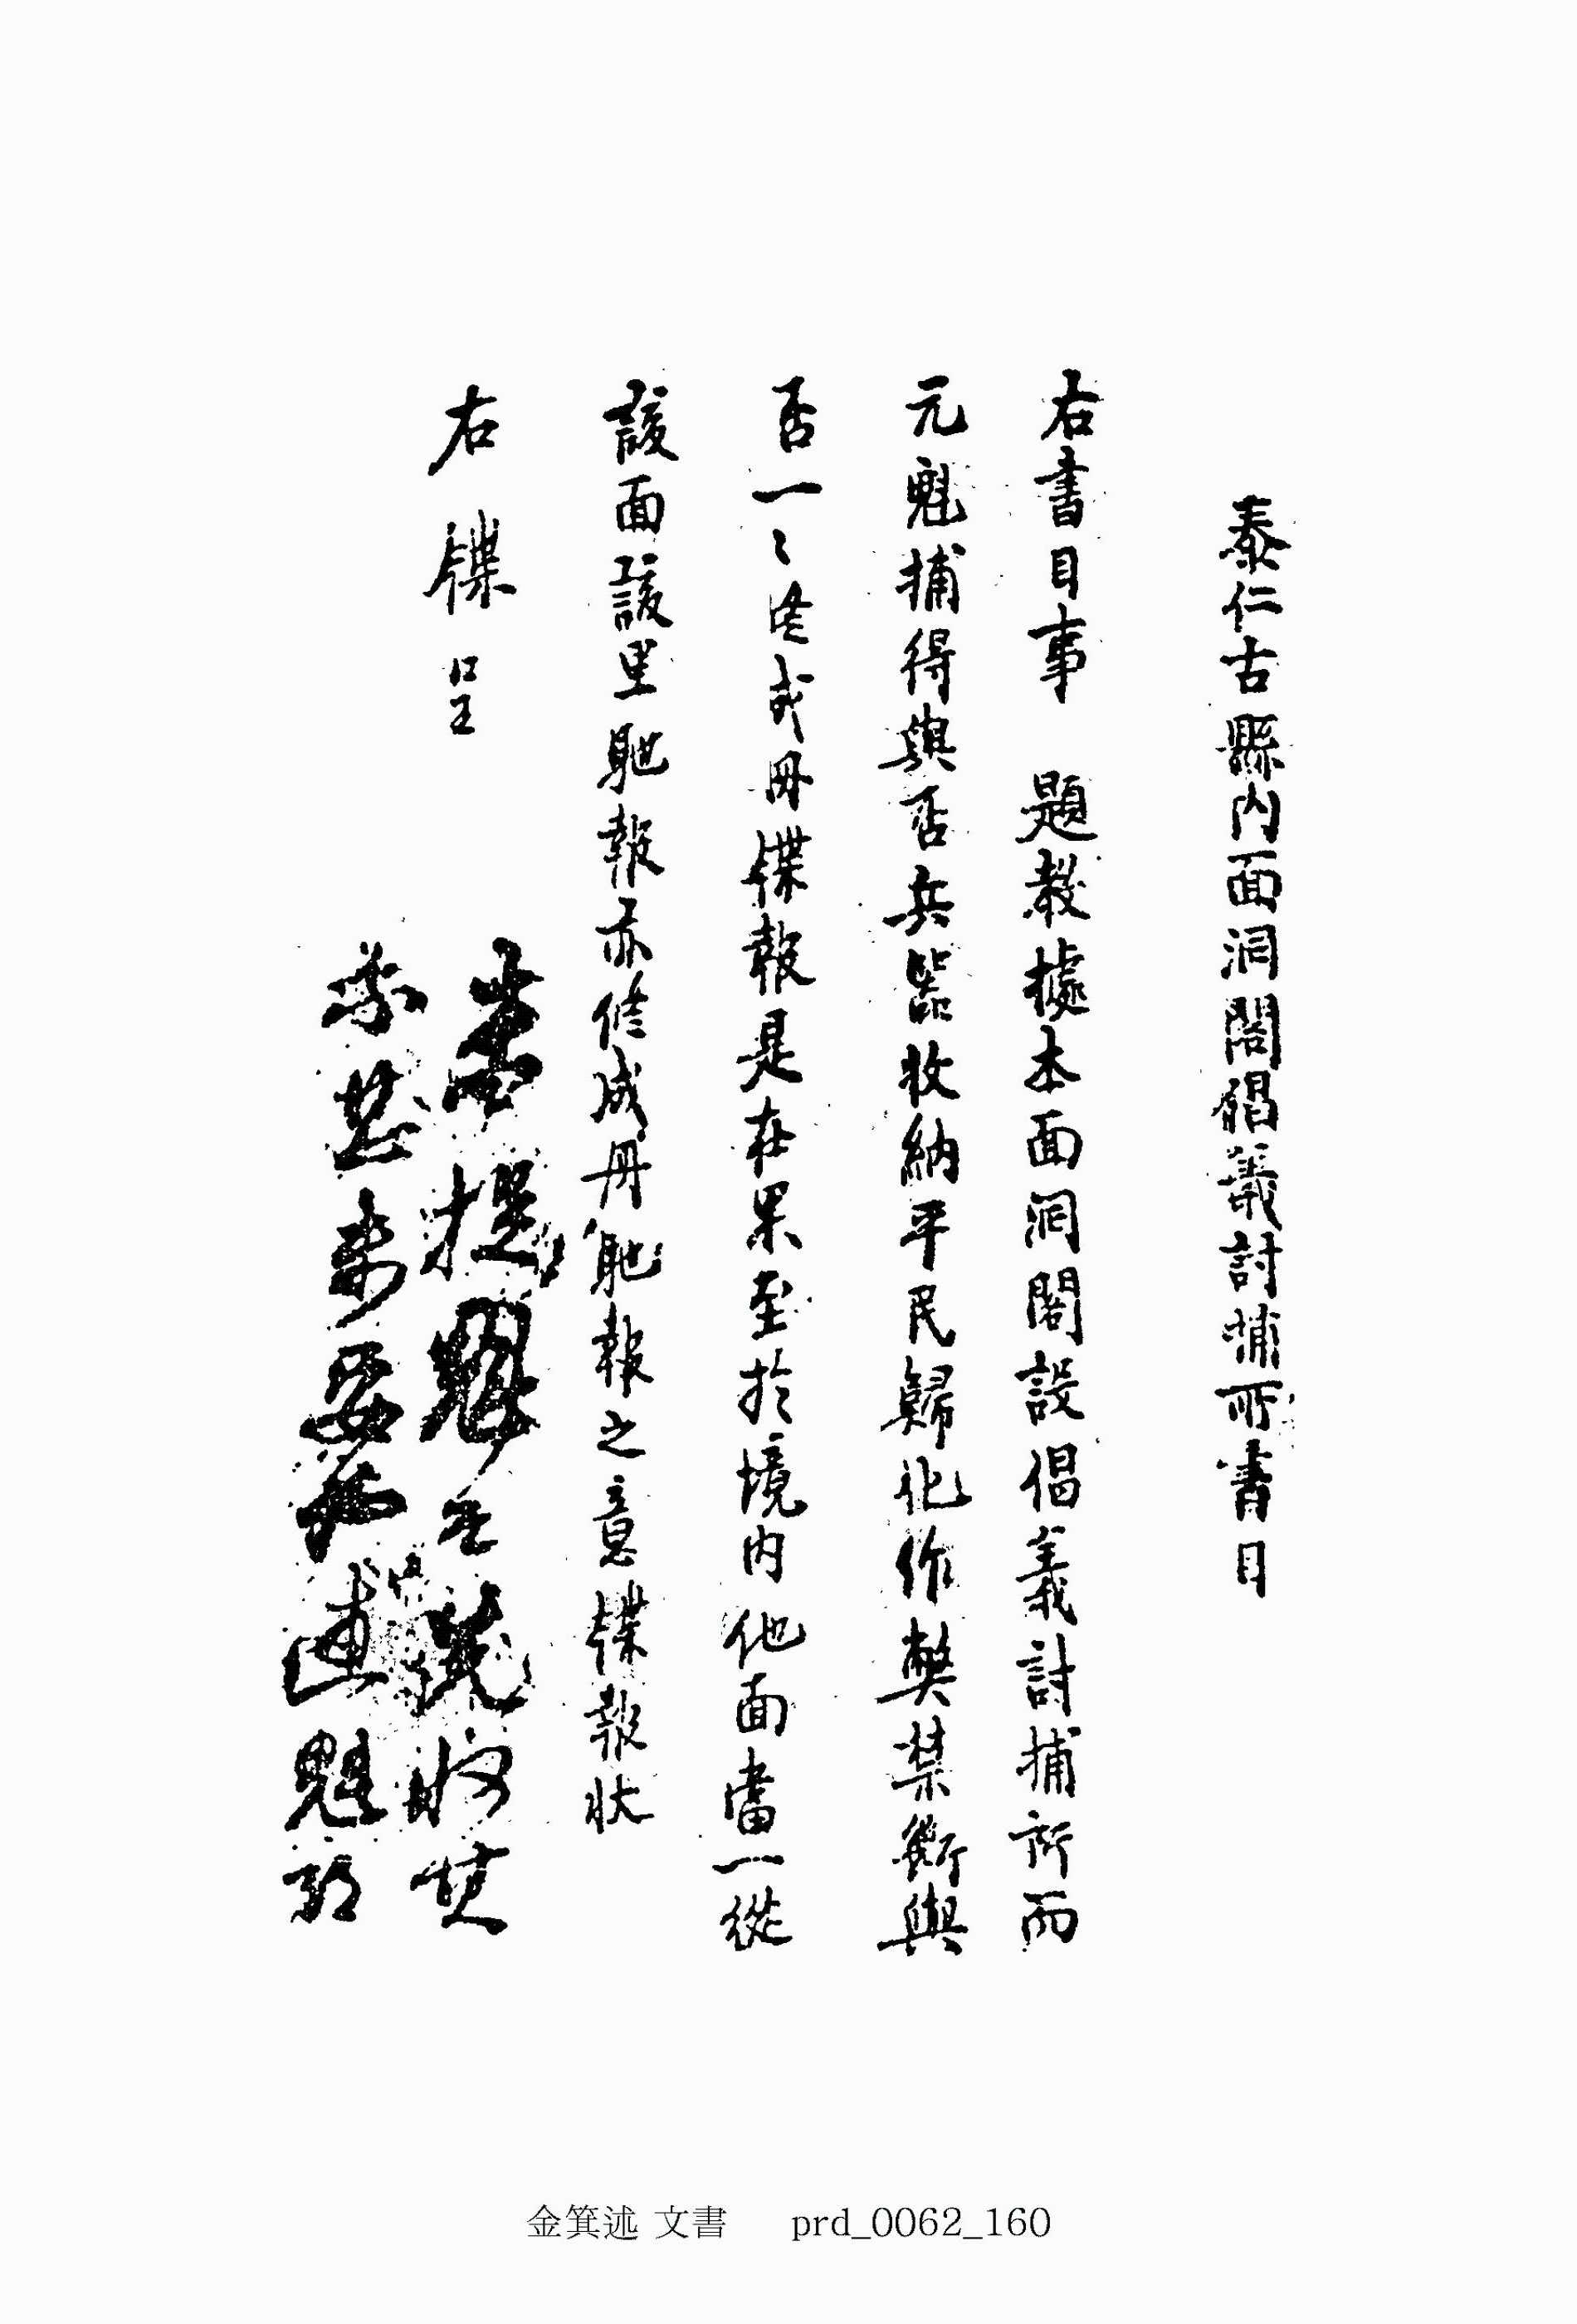 泰仁古縣內面洞閣倡義討捕所書目
右書目事 題敎據本面洞閣設倡義討捕所而
元魁捕得與否兵器收納平民歸化作弊禁斷與
否一〻修成冊牒報是在果至於境內他面當一從
該面該里馳報亦修成冊馳報之意牒報狀
右牒呈
金箕述 文書 prd_0062_160